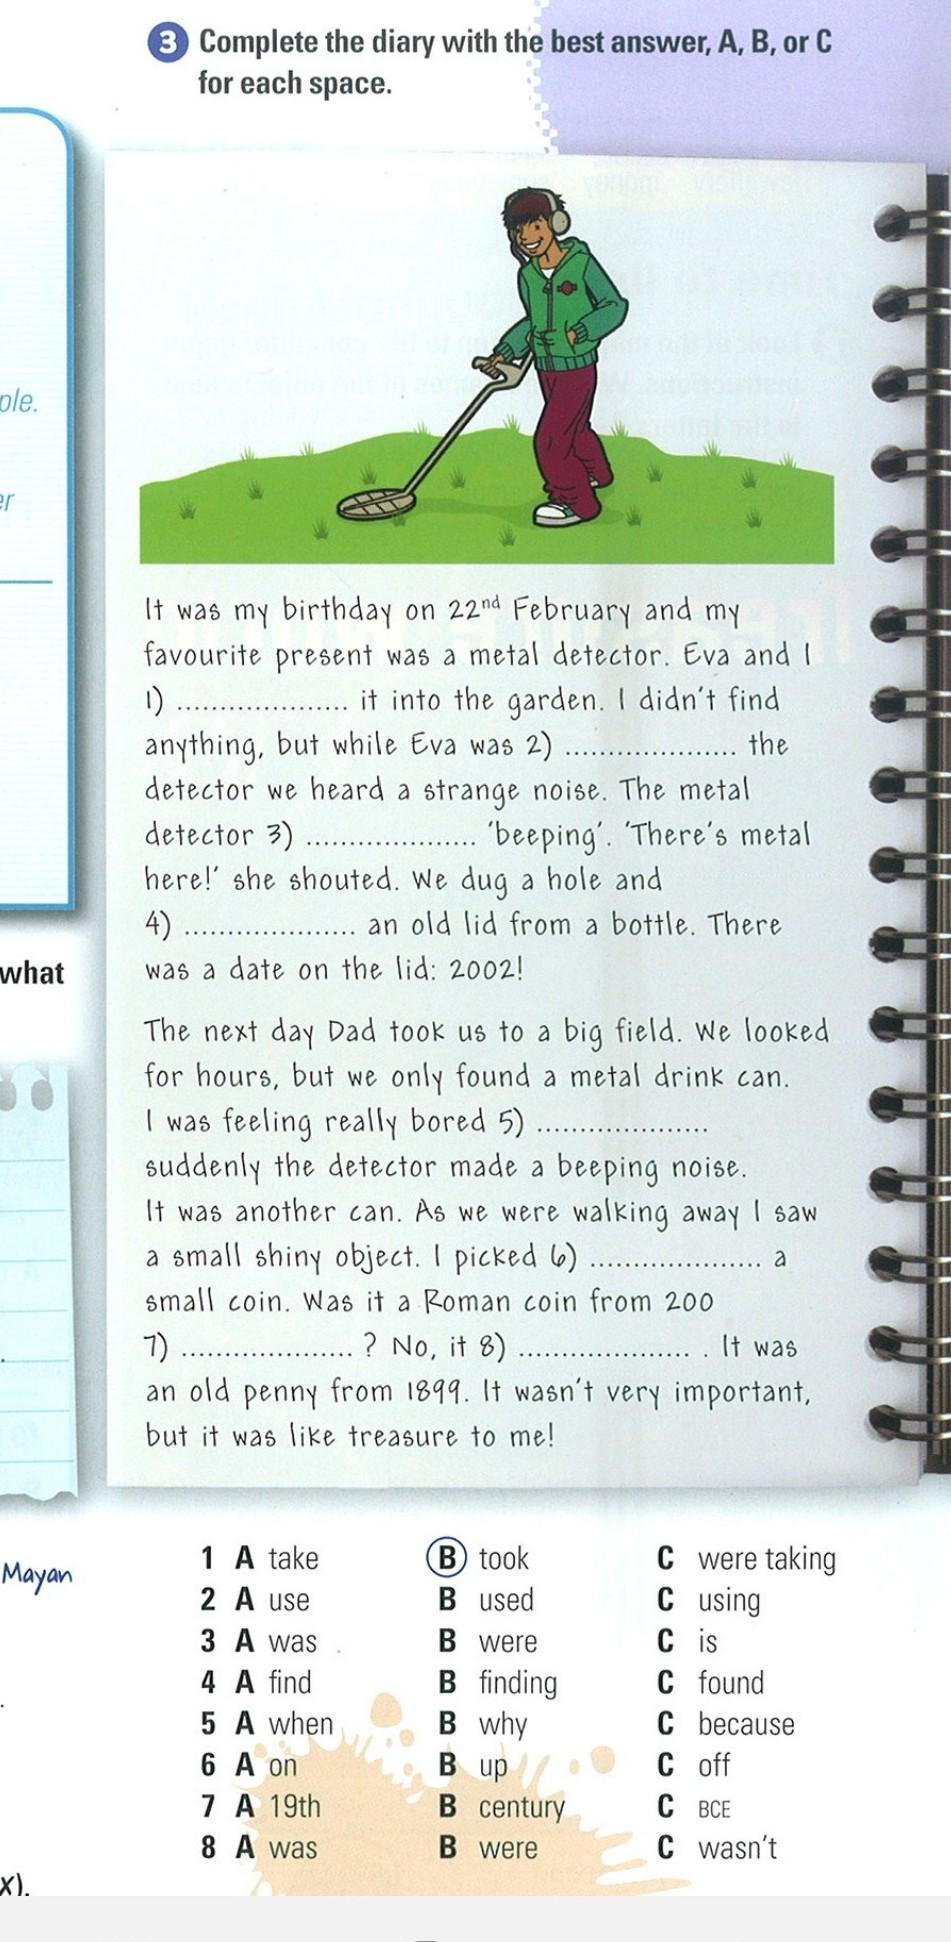 3 Complete the diary with the best answer, A, B, or C
for each space.
ple.
er
what
Mayan
x).
It was my birthday on 22nd February and my
favourite present was a metal detector. Eva and I
1) .................... it into the garden. I didn't find
anything, but while Eva was 2) .................... the
detector we heard a strange noise. The metal
detector 3) .................... 'beeping'. 'There's metal
here!' she shouted. We dug a hole and
4) .................... an old lid from a bottle. There
was a date on the lid: 2002!
The next day Dad took us to a big field. We looked
for hours, but we only found a metal drink can.
I was feeling really bored 5) ....................
suddenly the detector made a beeping noise.
It was another can. As we were walking away I saw
a small shiny object. I picked 6) .................... a
small coin. Was it a Roman coin from 200
7) .................... ? No, it 8) .................... . It was
an old penny from 1899. It wasn't very important,
but it was like treasure to me!
1 A take B took C were taking
2 A use B used C using
3 A was B were C is
4 A find B finding C found
5 A when B why C because
6 A on B up C off
7 A 19th B century C BCE
8 A was B were C wasn't